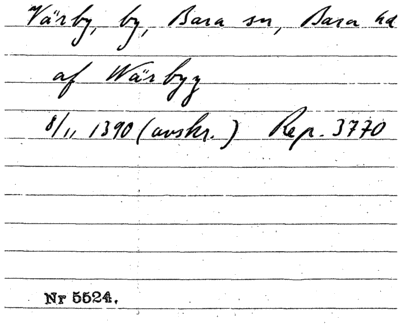 Värby, by, Bara sn, Bara hd
af Wärbyy
8/11 1390 (avskr.) Rep. 3770
Nr 5524.